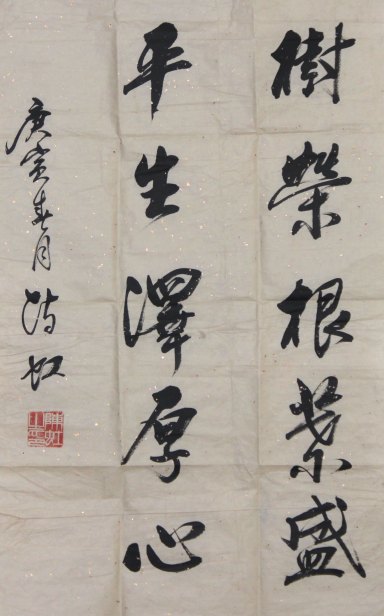 樹榮根葉盛
平生澤厚心
庚寅春月陳虹